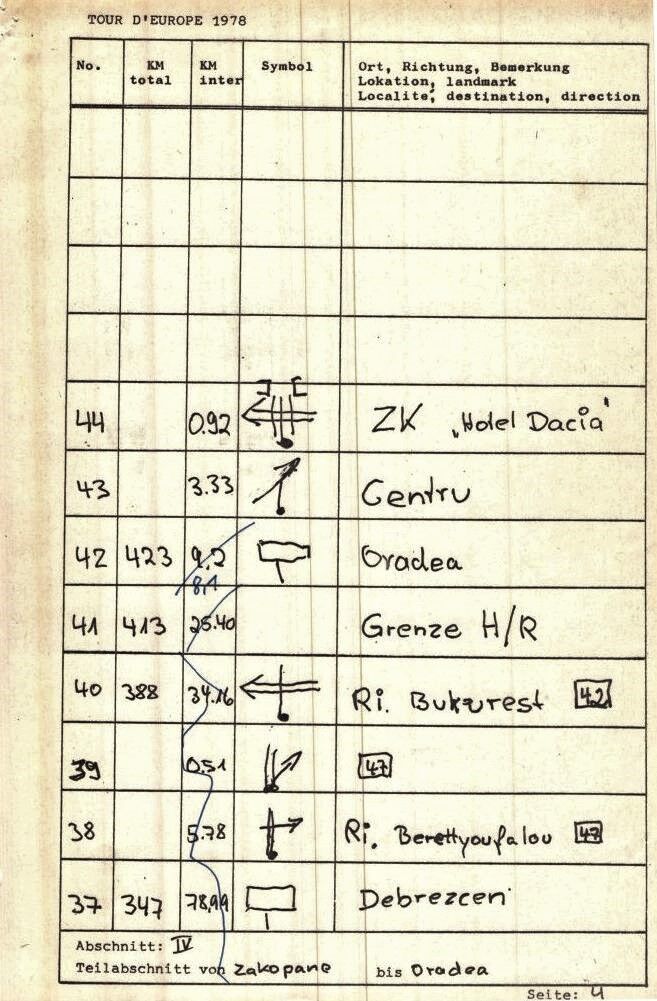 TOUR D'EUROPE 1978
No. KM total KM inter Symbol Ort, Richtung, Bemerkung
Lokation, landmark
Localité, destination, direction
44 0.92 ZK „Hotel Dacia"
43 3.33 Centru
42 423 9,2 Oradea
8,1
41 413 25.40 Grenze H/R
40 388 34.16 Ri. Bukurest 42
39 0.51 47
38 5.78 Ri. Berettyoufalou 47
37 347 78,99 Debrezcen
Abschnitt: IV
Teilabschnitt von Zakopane bis Oradea
Seite: 4